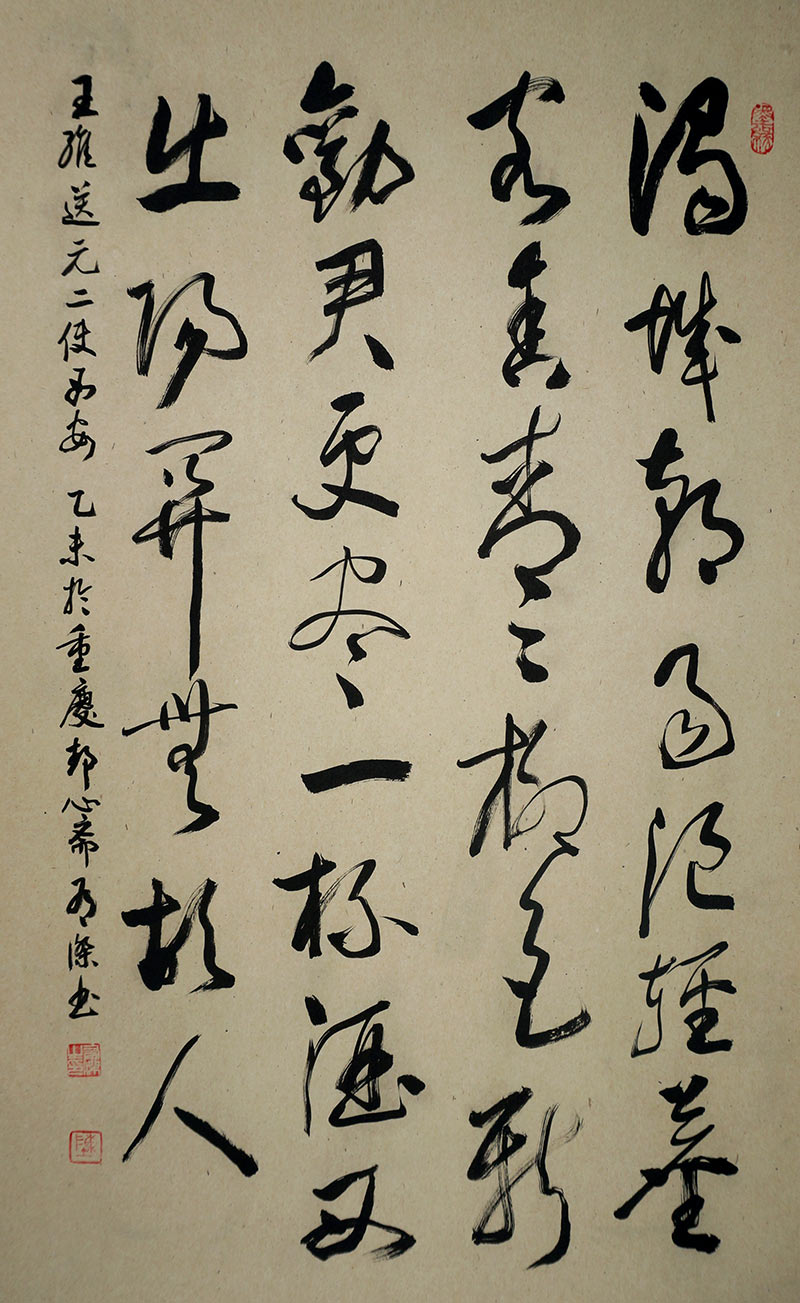 渭城朝雨浥輕塵
客舍青々柳色新
勸君更尽一杯酒西
出陽關無故人
王維送元二使西安 乙未於重慶 心斋 书